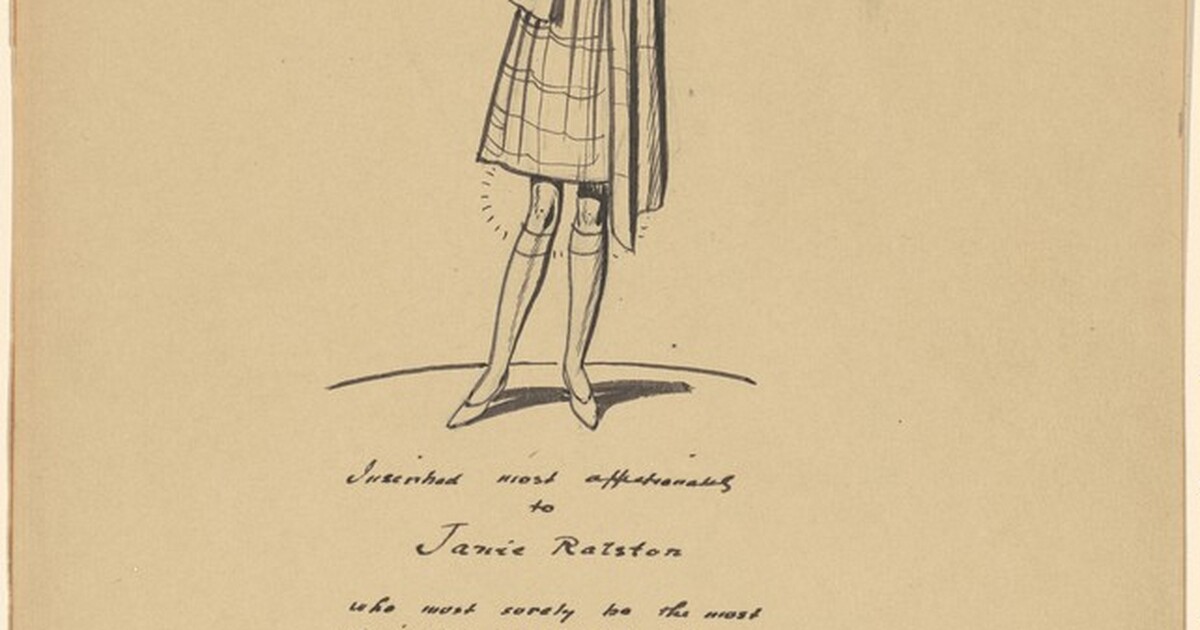 Inscribed most affectionately
to
Janie Ralston
who must surely be the most